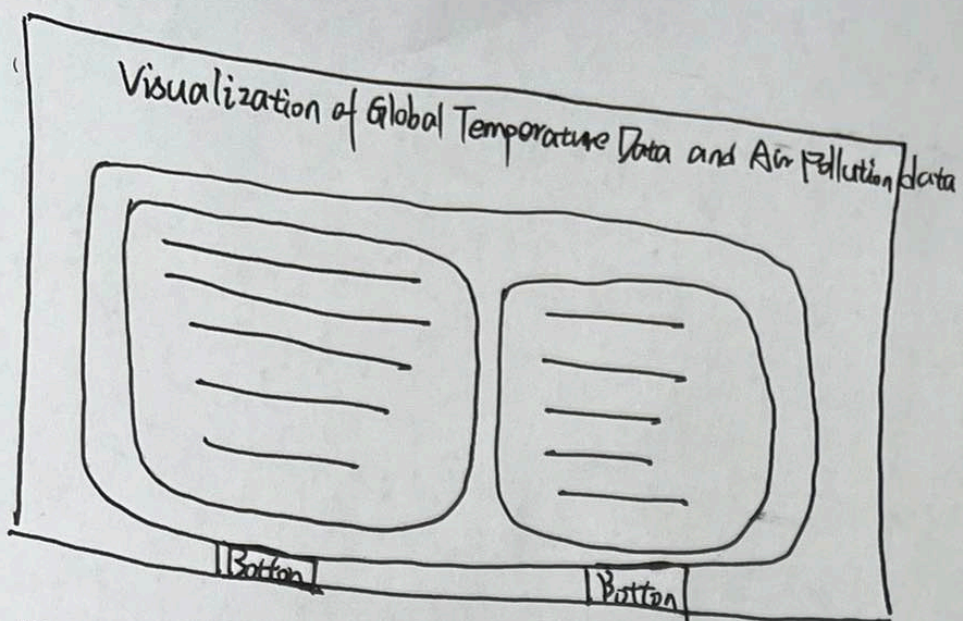 Visualization of Global Temperature Data and Air Pollution data
Botton
Botton